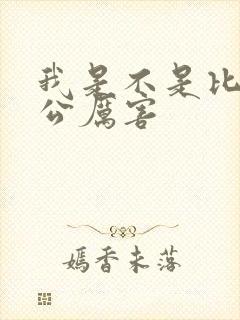 我是不是比
公厲害
嫣香未落